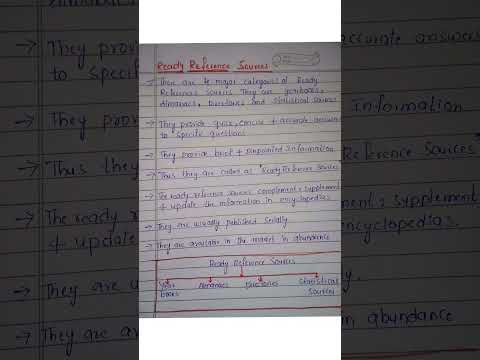 Ready Reference Sources
→ There are 4 major categories of Ready
Reference Sources. They are yearbooks,
Almanacs, Directories and Statistical sources
→ They provide quick, concise + accurate answers
to specific questions
→ They provide brief + pinpointed Information
→ Thus they are called as "Ready Reference Sources"
→ The ready reference sources complement & supplement
+ update the information in encyclopedias.
→ They are usually published serially
→ They are available in the market in abundance
Ready Reference Sources
Year books
Almanacs
Directories
Statistical Sources
→ They provi
to specific
→ They prov
→ Thus they
→ The ready
+ update
→ They are u
→ They are a
accurate answers
Information
Reference Sources"
& supplement
encyclopedias.
in abundance